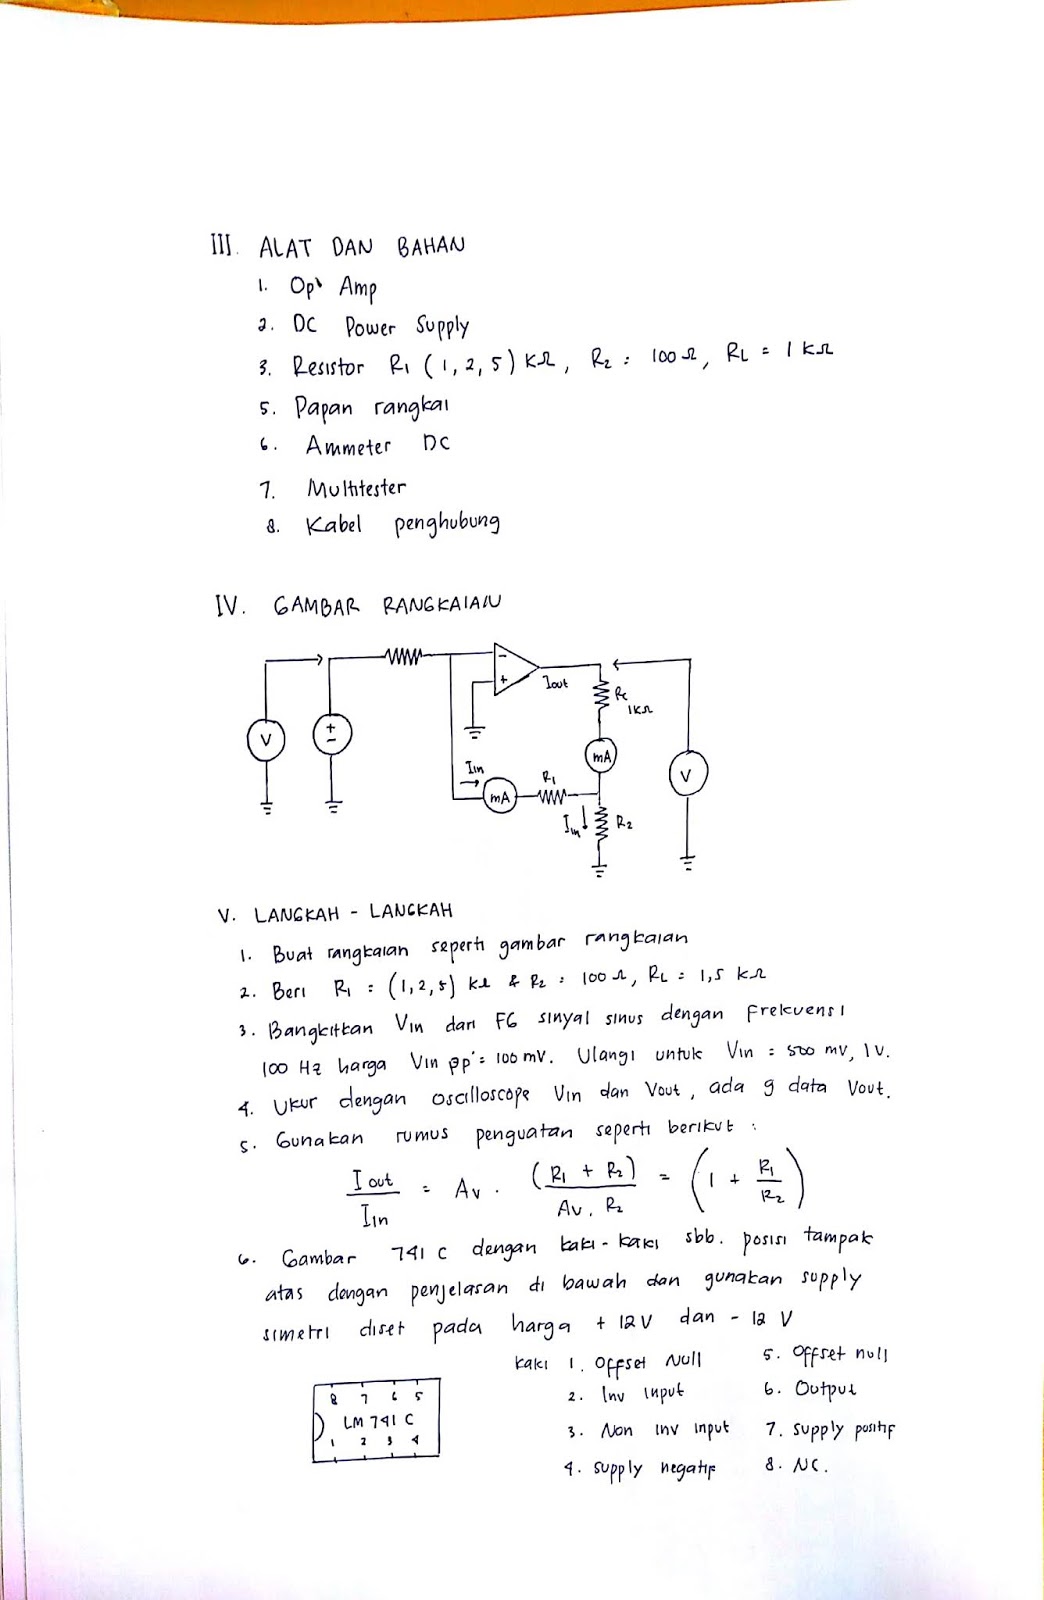 III. ALAT DAN BAHAN
1. Op' Amp
2. DC Power Supply
3. Resistor R1 (1, 2, 5) KΩ, R2 : 100 Ω, RL = 1 KΩ
5. Papan rangkai
6. Ammeter DC
7. Multitester
8. Kabel penghubung
IV. GAMBAR RANGKAIAN
- +
Iout
RL
1KΩ
V + -
mA
V
Iin
mA
R1
Iin
R2
V. LANGKAH - LANGKAH
1. Buat rangkaian seperti gambar rangkaian
2. Beri R1 : (1, 2, 5) kΩ & R2 : 100 Ω, RL = 1,5 KΩ
3. Bangkitkan Vin dari FG sinyal sinus dengan Frekuensi
100 Hz harga Vin pp' = 100 mV. Ulangi untuk Vin = 500 mV, 1 V.
4. Ukur dengan oscilloscope Vin dan Vout, ada 9 data Vout.
5. Gunakan rumus penguatan seperti berikut :
Iout / Iin = Av . (R1 + R2) / Av . R2 = (1 + R1 / R2)
6. Gambar 741 C dengan kaki - kaki sbb. posisi tampak
atas dengan penjelasan di bawah dan gunakan supply
simetri diset pada harga + 12 V dan - 12 V
Kaki 1. Offset Null 5. Offset null
2. Inv Input 6. Output
3. Non inv input 7. supply positif
4. supply negatif 8. NC.
8 7 6 5
LM 741 C
1 2 3 4